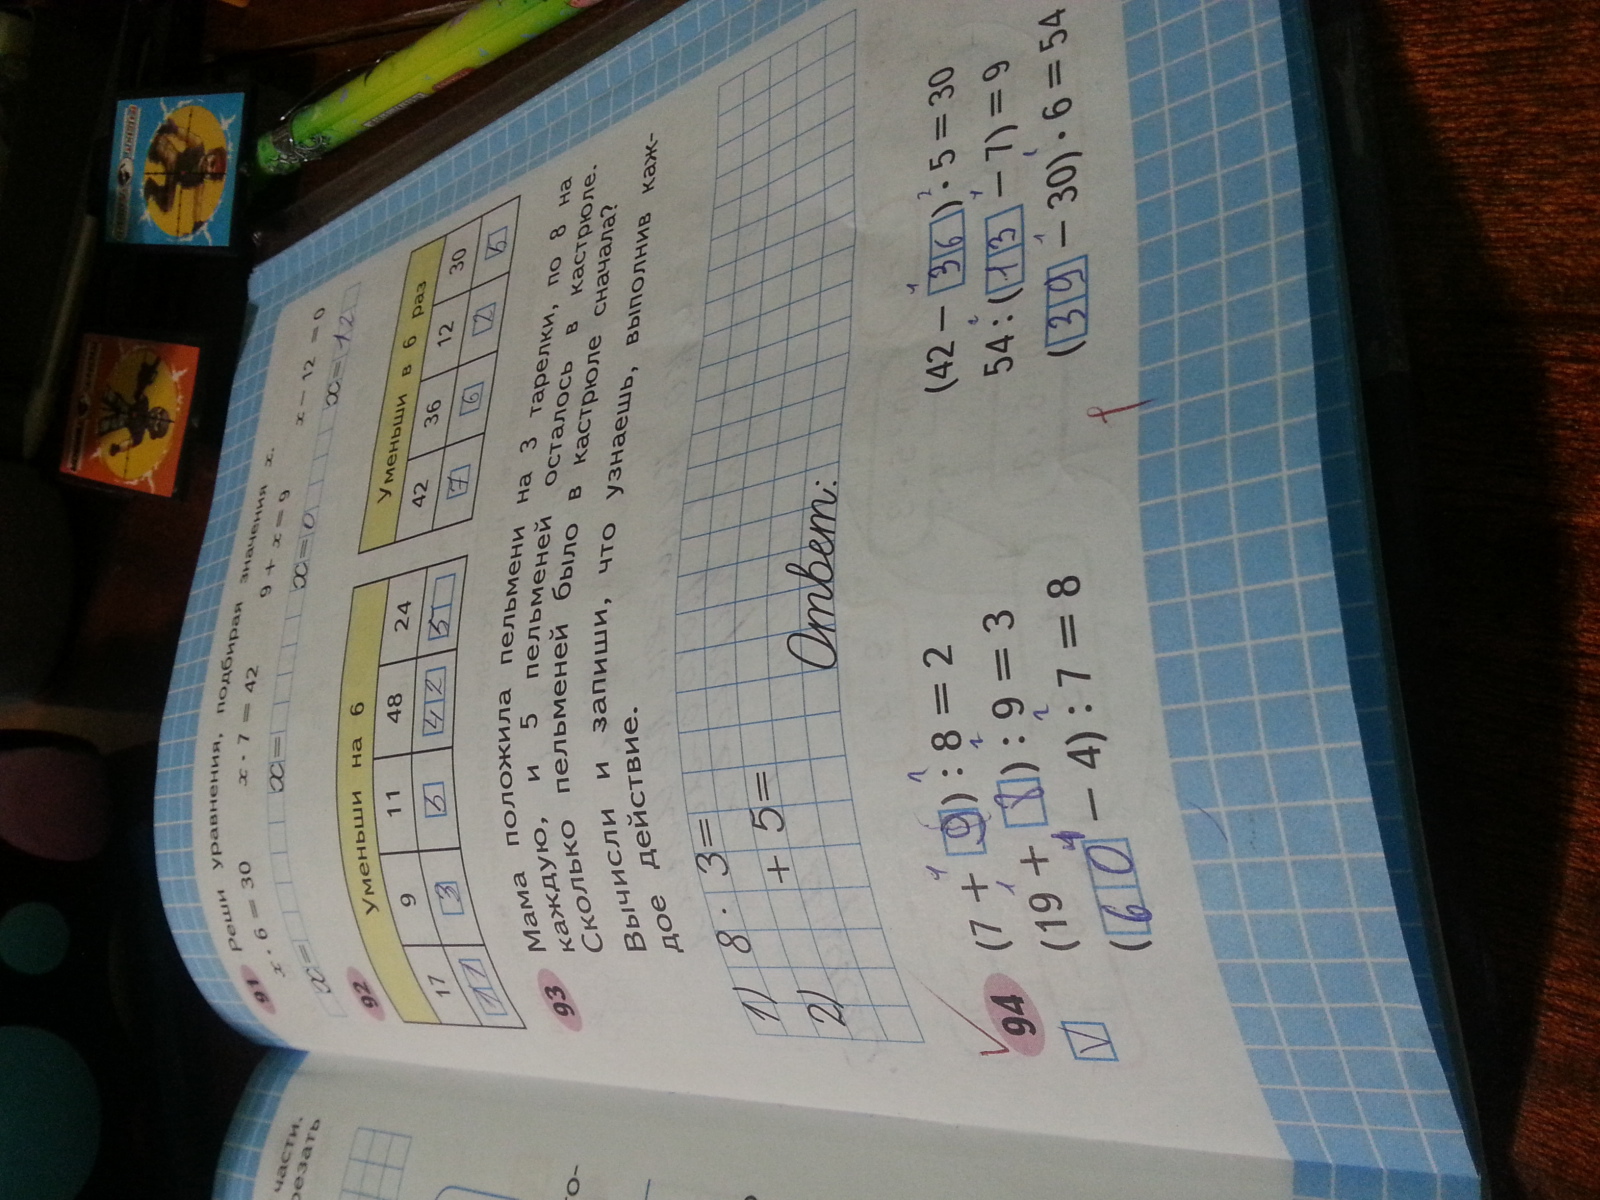 части.
резать
91 Реши уравнения, подбирая значения x.
x · 6 = 30 x · 7 = 42 9 + x = 9 x − 12 = 0
x = x = x = 0 x = 12
92
Уменьши на 6
17 9 11 48 24
11 3 5 42
Уменьши в 6 раз
42 36 12 30
7 6 2 5
93 Мама положила пельмени на 3 тарелки, по 8 на
каждую, и 5 пельменей осталось в кастрюле.
Сколько пельменей было в кастрюле сначала?
Вычисли и запиши, что узнаешь, выполнив каж-
дое действие.
1) 8 · 3 =
2) + 5 =
Ответ:
94 (7 + 9) : 8 = 2 (42 − 36) · 5 = 30
(19 + 8) : 9 = 3 54 : (13 − 7) = 9
(60 − 4) : 7 = 8 (39 − 30) · 6 = 54